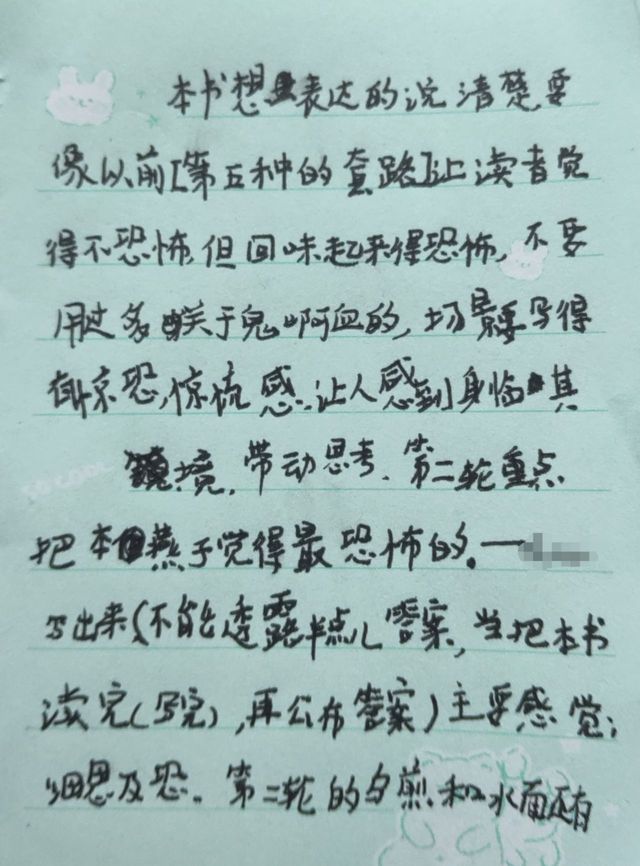 本书想表达的说清楚,要
像以前[第五种的套路]让读者觉
得不恐怖,但回味起来得恐怖,不要
用过多关于鬼啊血的,场景要写得
有惊恐,惊慌感.让人感到身临其
境,带动思考.第二轮重点
把本燕子觉得最恐怖的.一
写出来(不能透露半点儿答案,当把本书
读完(写完),再公布答案)主要感觉:
细思及恐.第二轮的 和水面还有